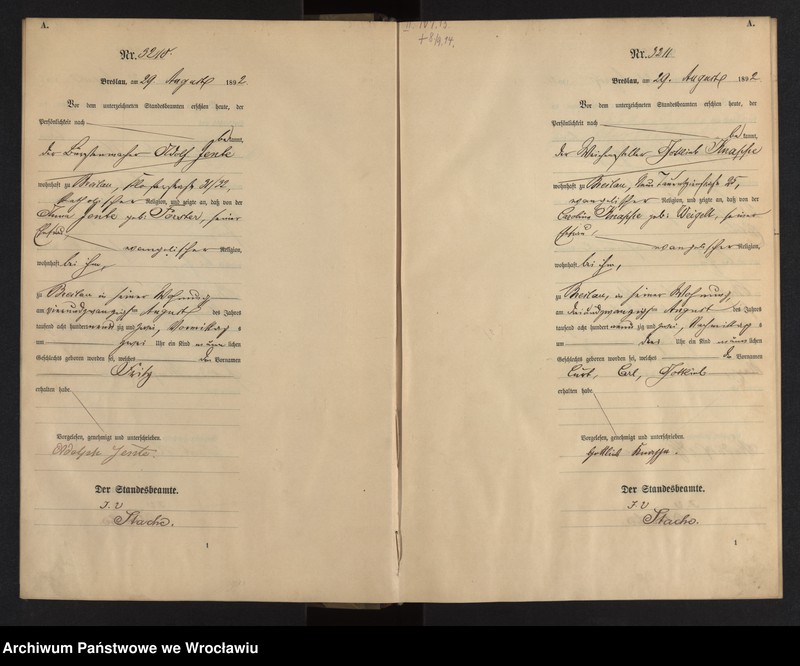 A.
Nr. 3210
Breslau, am 29 August 1892.
Vor dem unterzeichneten Standesbeamten erschien heute, der
Persönlichkeit nach
bekannt,
der Bürstenmacher Adolf Jente
wohnhaft zu Breslau, Klosterstraße 31/32,
katholischer Religion, und zeigte an, daß von der
Anna Jente geb. Förster, seiner
Ehefrau,
evangelischer Religion,
wohnhaft bei ihm,
zu Breslau in seiner Wohnung
am vierundzwanzigsten August des Jahres
tausend acht hundert neunzig und zwei, Vormittags
um zwei Uhr ein Kind männlichen
Geschlechts geboren worden sei, welches den Vornamen
Fritz
erhalten habe.
Vorgelesen, genehmigt und unterschrieben.
Adolph Jente.
Der Standesbeamte.
I. V
Stache.
1
+ 8/9.94.
A.
Nr. 3211
Breslau, am 29. August 1892.
Vor dem unterzeichneten Standesbeamten erschien heute, der
Persönlichkeit nach
bekannt,
der Weichensteller Gottlieb Knappe
wohnhaft zu Breslau, Neue Tauentzienstraße 25,
evangelischer Religion, und zeigte an, daß von der
Caroline Knappe geb. Weigelt, seiner
Ehefrau,
evangelischer Religion,
wohnhaft bei ihm,
zu Breslau, in seiner Wohnung
am dreiundzwanzigsten August des Jahres
tausend acht hundert neunzig und zwei, Nachmittags
um drei Uhr ein Kind männlichen
Geschlechts geboren worden sei, welches die Vornamen
Curt, Carl, Gottlieb
erhalten habe.
Vorgelesen, genehmigt und unterschrieben.
Gottlieb Knappe.
Der Standesbeamte.
I. V
Stache.
1
Archiwum Państwowe we Wrocławiu